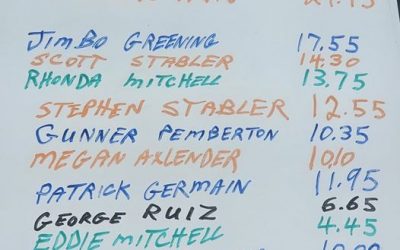 JimBo GREENING 17.55
SCOTT STABLER 14.30
RHONDA MITCHELL 13.75
STEPHEN STABLER 12.55
GUNNER PEMBERTON 10.35
MEGAN AXLENDER 10.10
PATRICK GERMAIN 11.95
GEORGE RUIZ 6.65
EDDIE MITCHELL 4.45